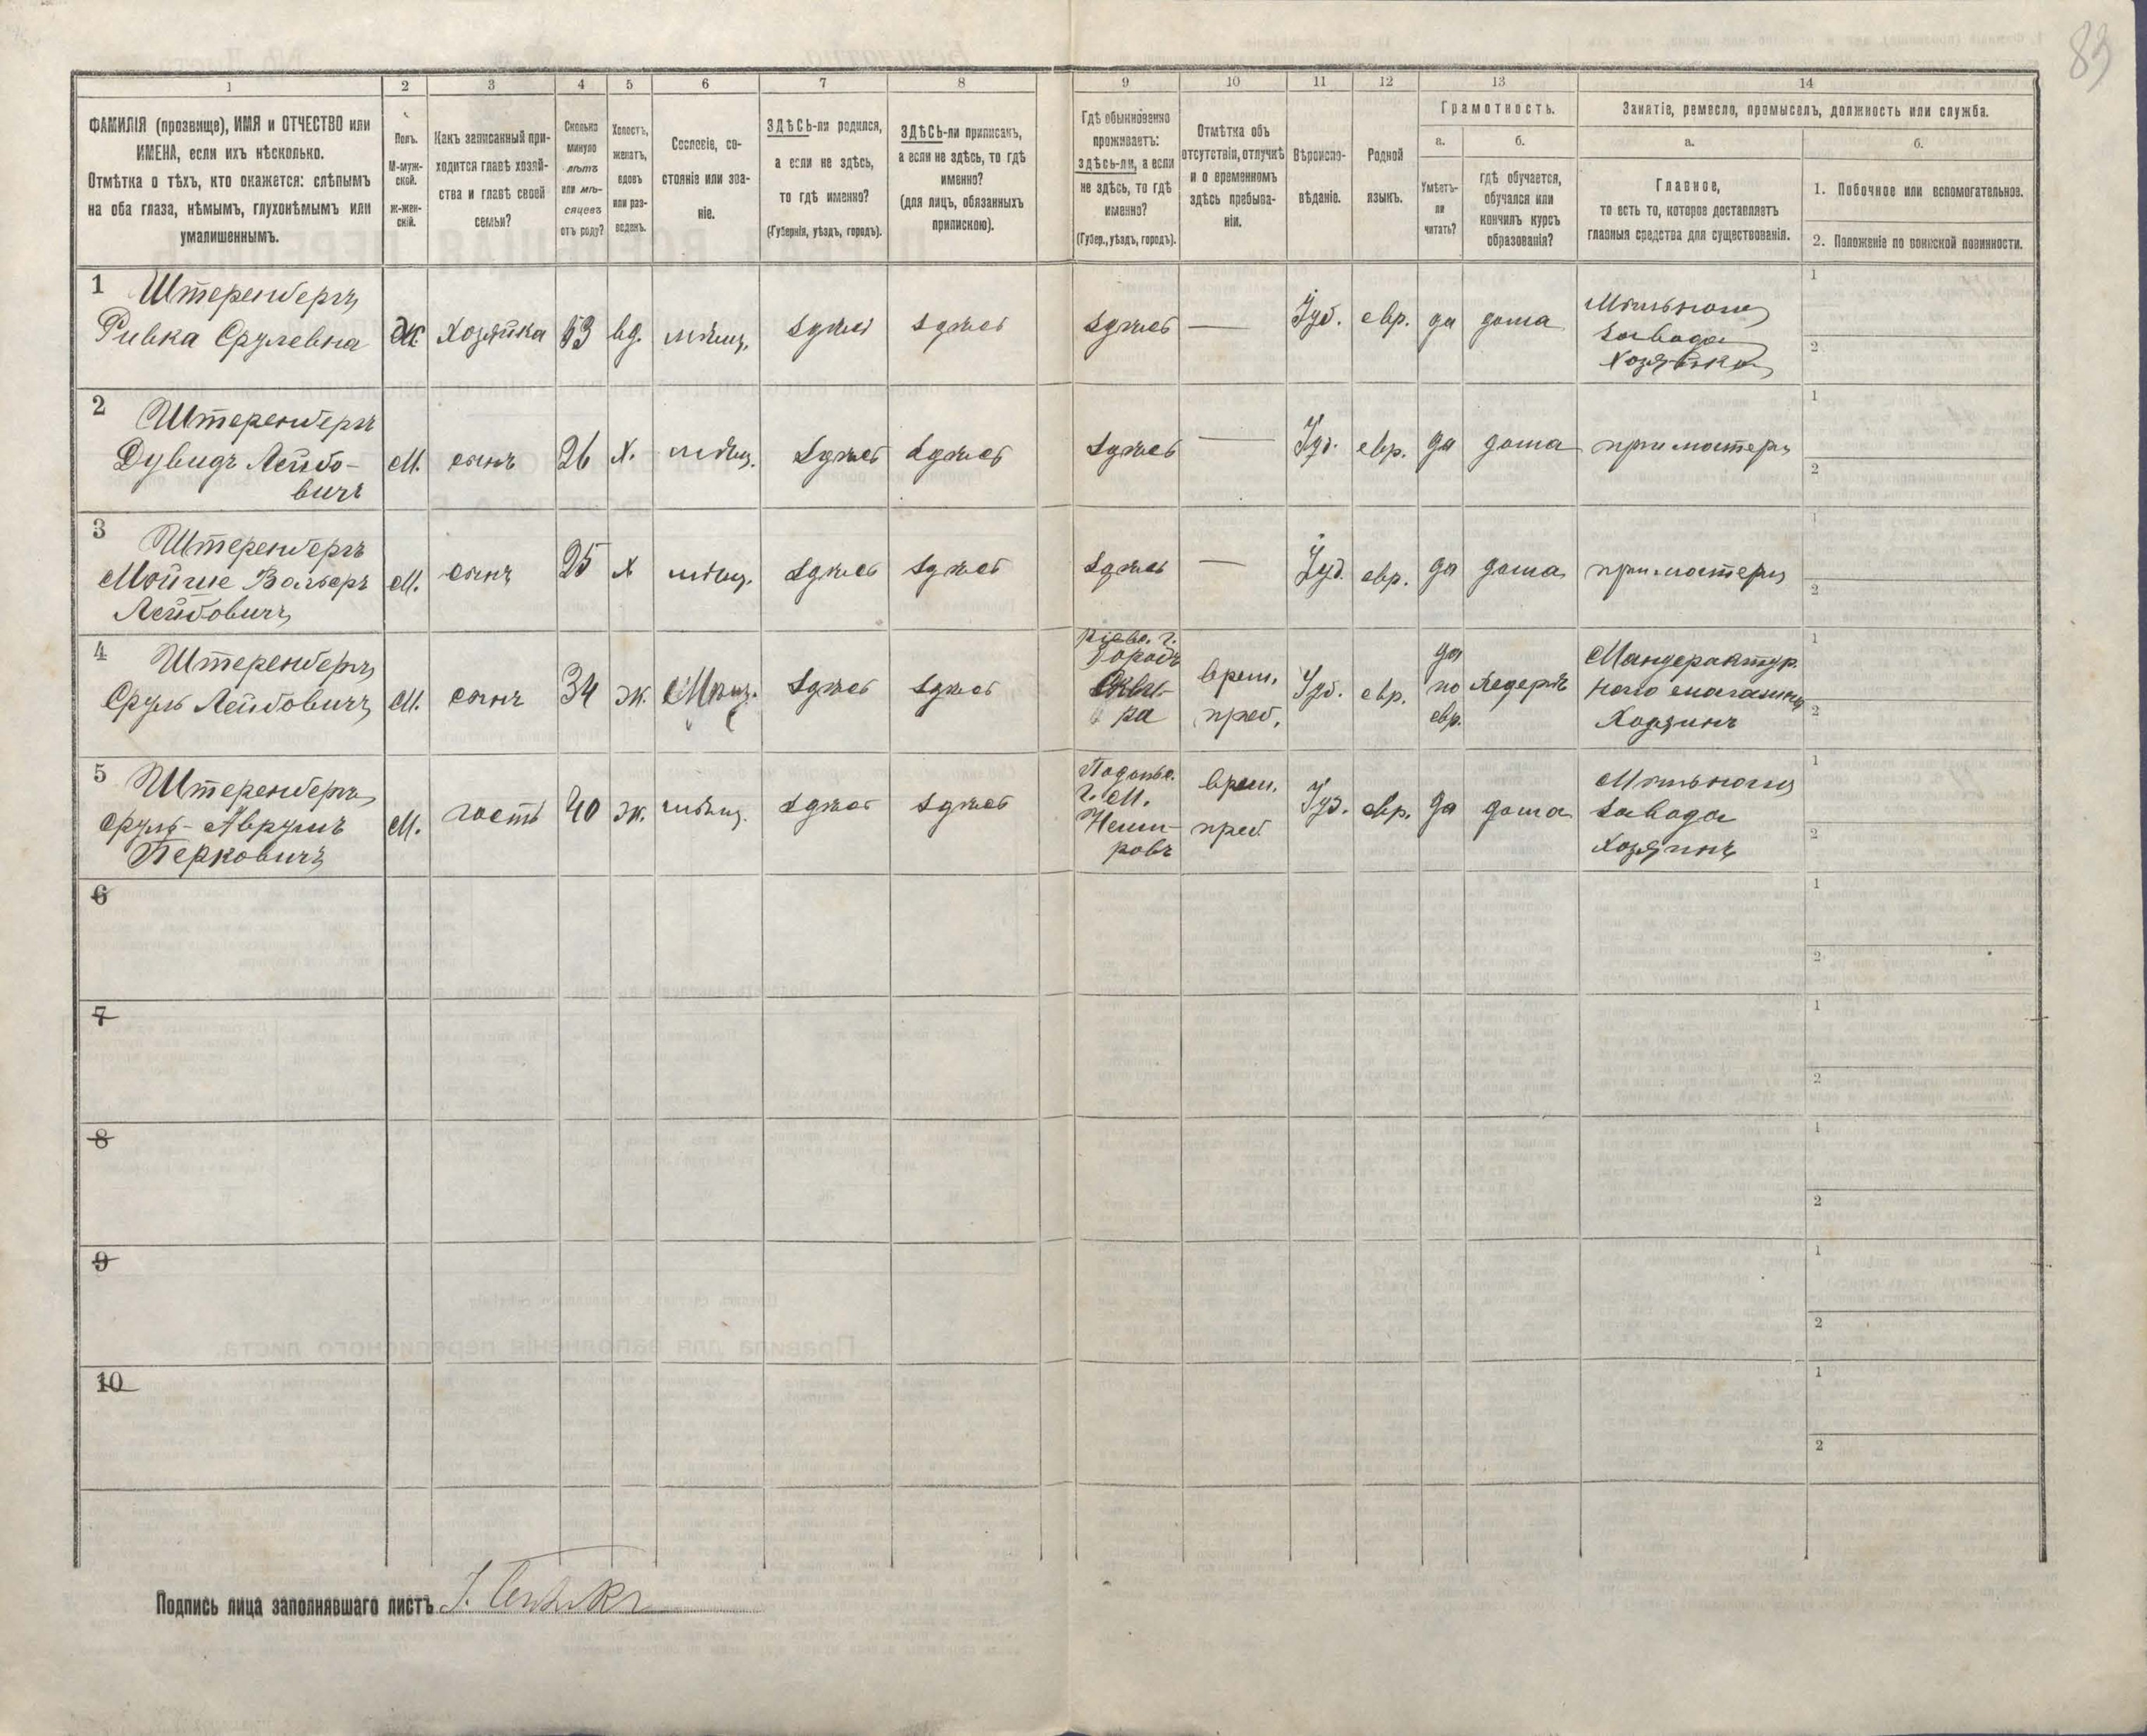 83
1 2 3 4 5 6 7 8 9 10 11 12 13 14
ФАМИЛІЯ (прозвище), ИМЯ и ОТЧЕСТВО или
ИМЕНА, если ихъ нѣсколько.
Отмѣтка о тѣхъ, кто окажется: слѣпымъ
на оба глаза, нѣмымъ, глухонѣмымъ или
умалишеннымъ.
Полъ.
М-муж-
ской.
Ж-жен-
скій.
Какъ записанный при-
ходится главѣ хозяй-
ства и главѣ своей
семьи?
Сколько
минуло
лѣтъ
или мѣ-
сяцевъ
отъ роду?
Холостъ,
женатъ,
вдовъ
или раз-
веденъ.
Сословіе, со-
стояніе или зва-
ніе.
ЗДѢСЬ-ли родился,
а если не здѣсь,
то гдѣ именно?
(Губернія, уѣздъ, городъ).
ЗДѢСЬ-ли приписанъ,
а если не здѣсь, то гдѣ
именно?
(для лицъ, обязанныхъ
припискою).
Гдѣ обыкновенно
проживаетъ:
здѣсь-ли, а если
не здѣсь, то гдѣ
именно?
(Губер., уѣздъ, городъ).
Отмѣтка объ
отсутствіи, отлучкѣ
и о временномъ
здѣсь пребыва-
ніи.
Вѣроиспо-
вѣданіе.
Родной
языкъ.
Грамотность.
а.
Умѣетъ-
ли
читать?
б.
гдѣ обучается,
обучался или
кончилъ курсъ
образованія?
Занятіе, ремесло, промыселъ, должность или служба.
а.
Главное,
то есть то, которое доставляетъ
главныя средства для существованія.
б.
1. Побочное или вспомогательное.
2. Положеніе по воинской повинности.
1 Штеренбергъ
Ривка Срулевна
Ж. Хозяйка 53 вд. мѣщ. здѣсь здѣсь
здѣсь — Іуд. евр. да дома
Мыльнаго
завода
Хозяйка
1
2
2 Штеренбергъ
Дувидъ Лейбо-
вичъ
М. сынъ 26 х. мѣщ. здѣсь здѣсь
здѣсь — Іуд. евр. да дома при матери
1
2
3 Штеренбергъ
Мойше Вольферъ
Лейбовичъ
М. сынъ 25 х мѣщ. здѣсь здѣсь
здѣсь — Іуд. евр. да дома при матери
1
2
4 Штеренбергъ
Сруль Лейбовичъ
М. сынъ 34 ж. Мѣщ. здѣсь здѣсь
Кіевс. г.
Городъ
Скви-
ра
врем.
преб.
Іуд. евр.
да
по
евр.
Хедеръ
Мануфактур
наго магазина
Хозяинъ
1
2
5 Штеренбергъ
Сруль-Аврумъ
Берковичъ
М. гость 40 ж. мѣщ. здѣсь здѣсь
Подольс.
г. М.
Неми-
ровъ
врем.
преб
Іуд. евр. да дома
Мыльнаго
завода
Хозяинъ
1
2
6
1
2
7
1
2
8
1
2
9
1
2
10
1
2
Подпись лица заполнявшаго листъ